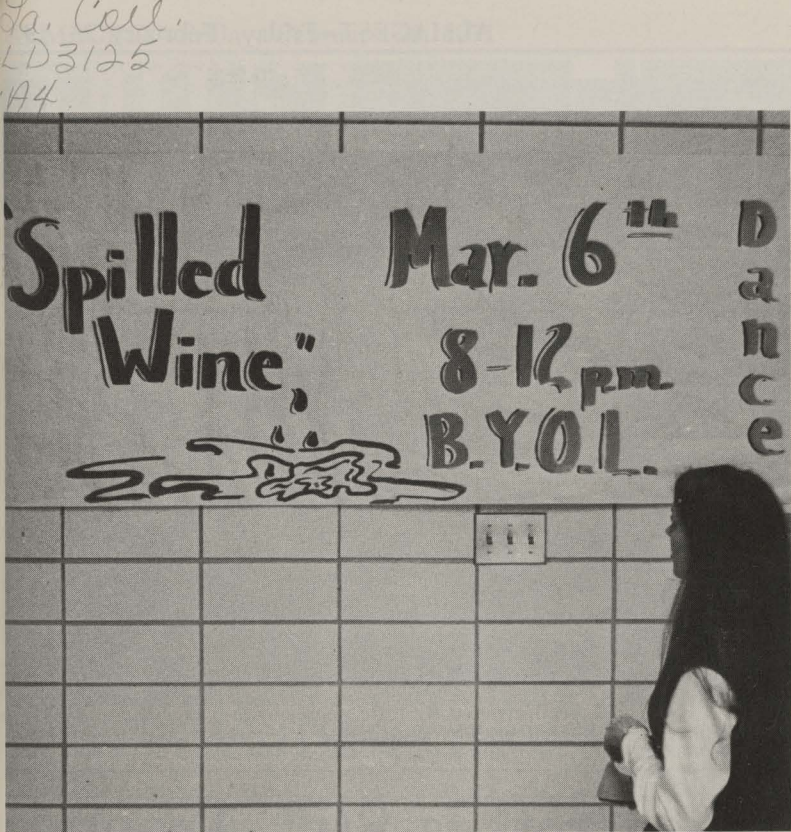 La. Coll.
LD3125
A4
"Spilled
Wine"
Mar. 6th
8-12 pm
B.Y.O.L.
Dance